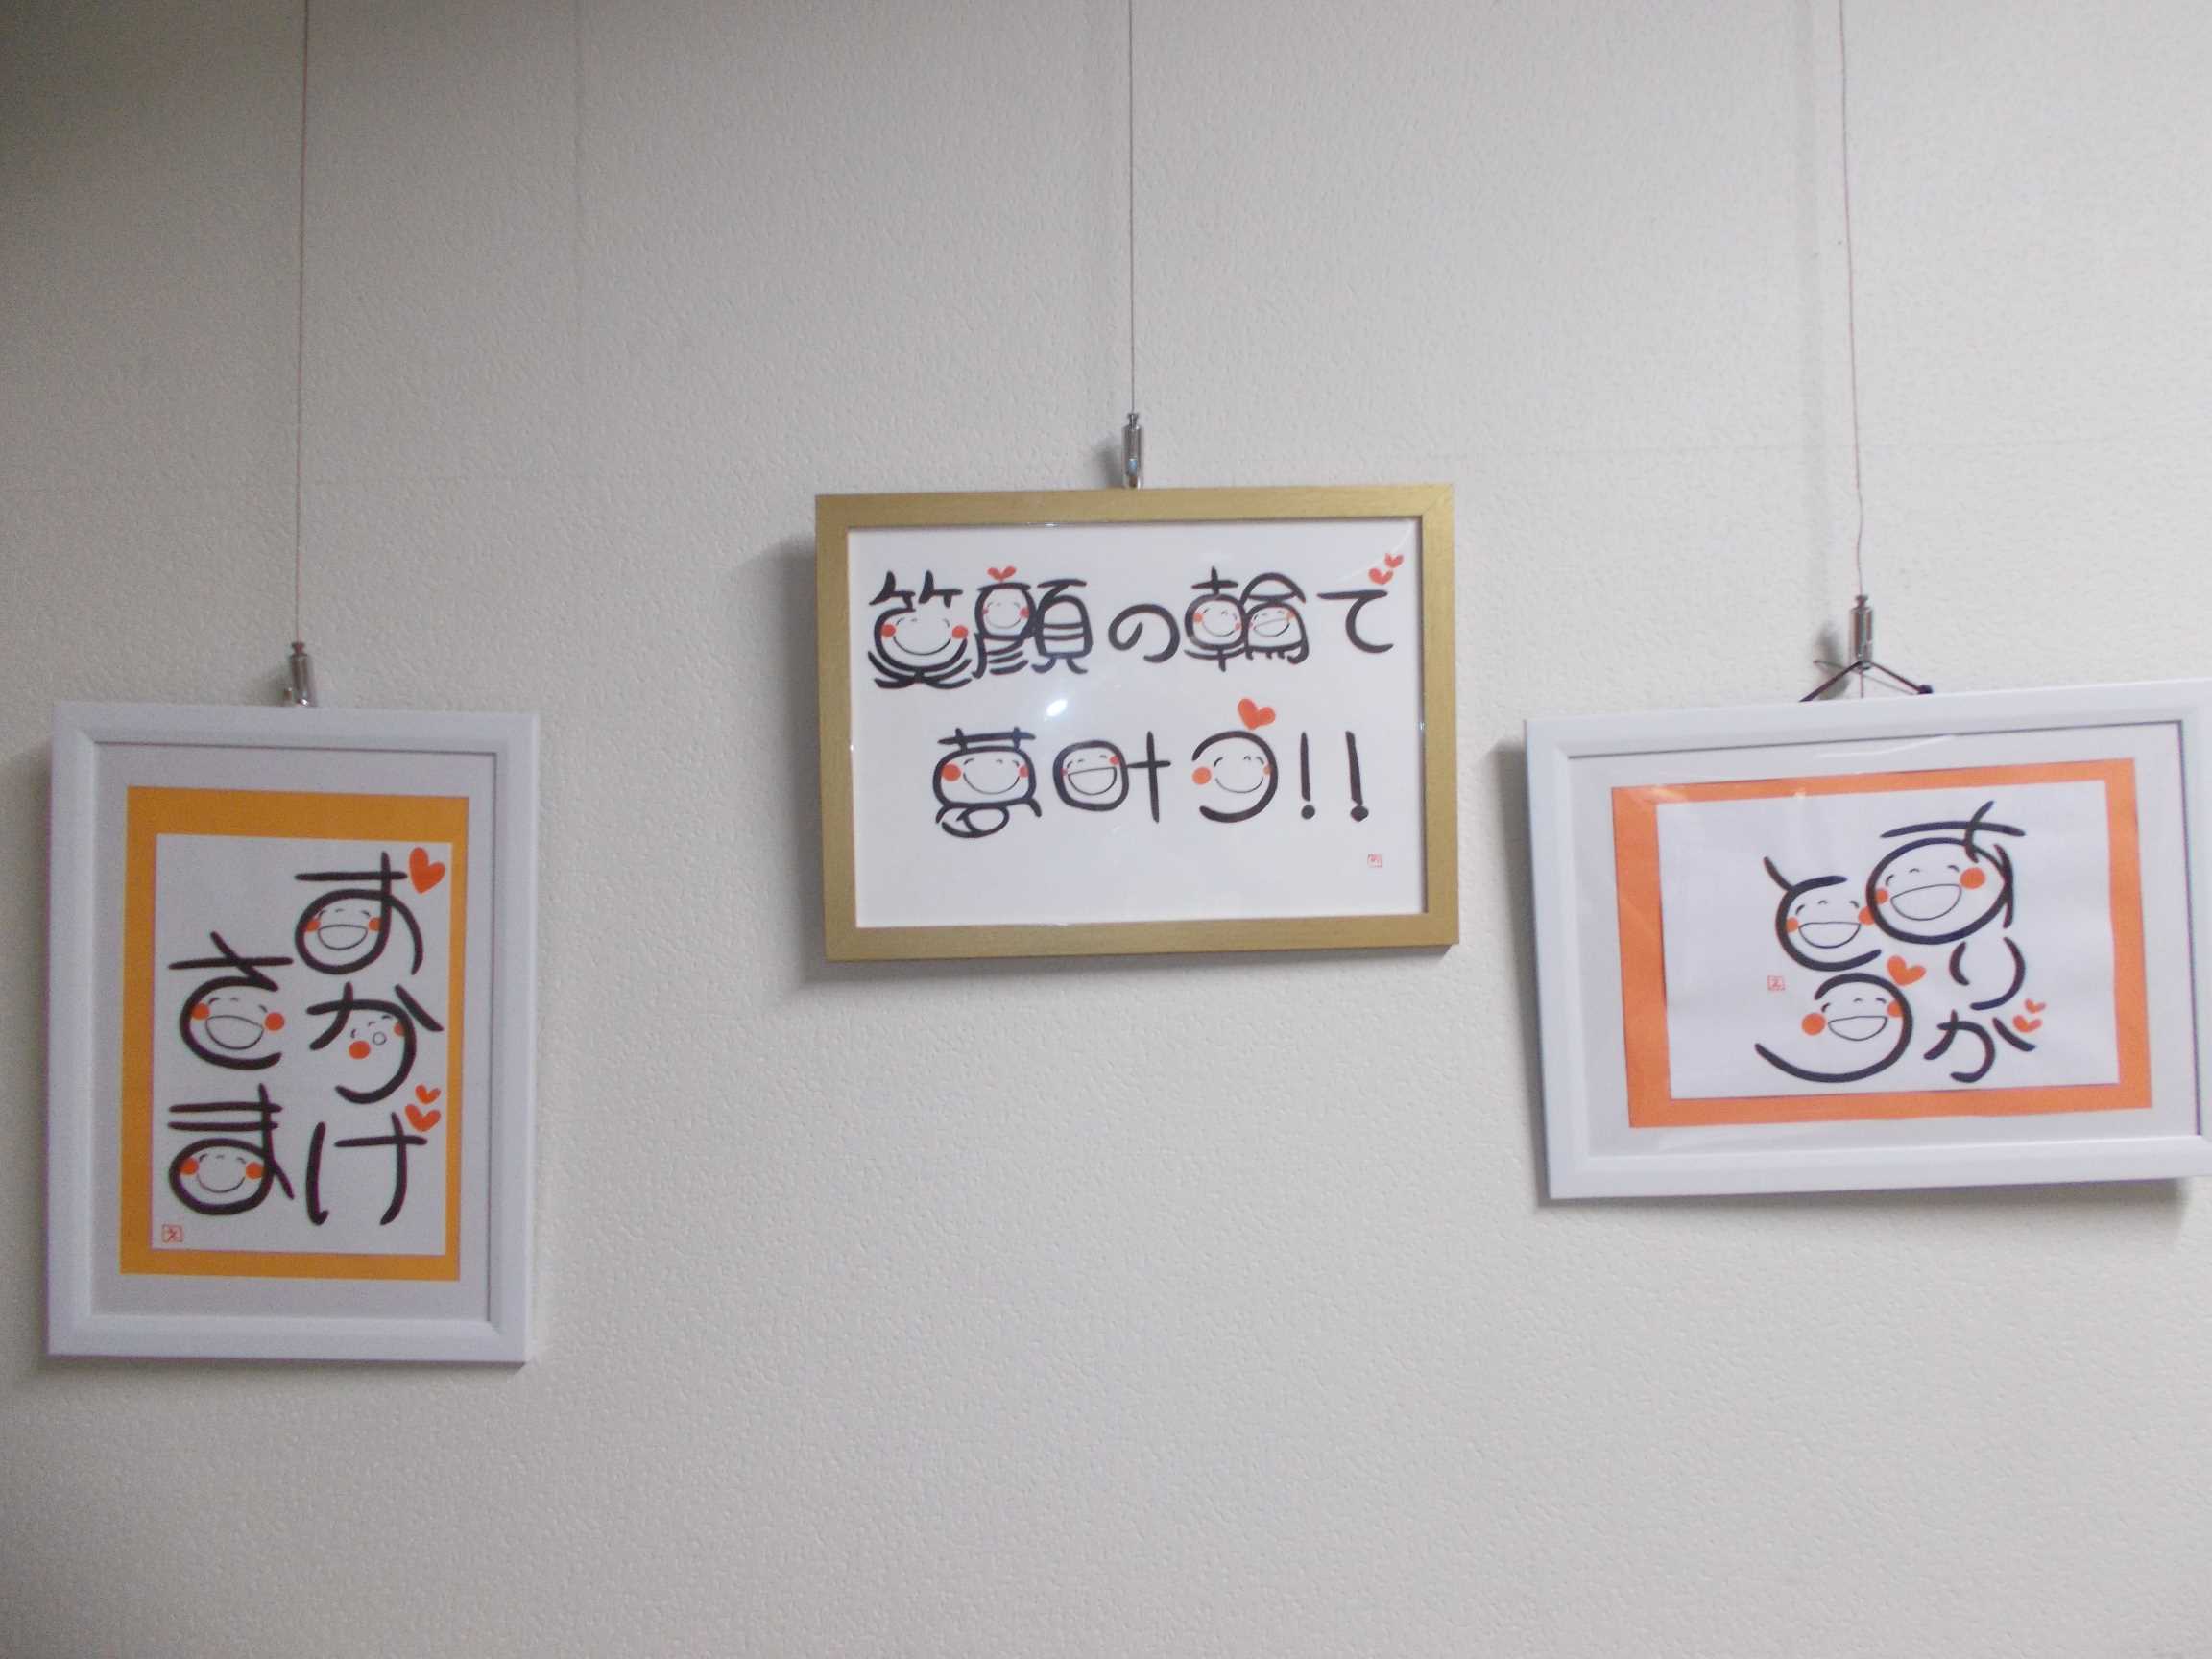 おかげ
さま
笑顔の輪で
夢叶う!!
ありが
とう